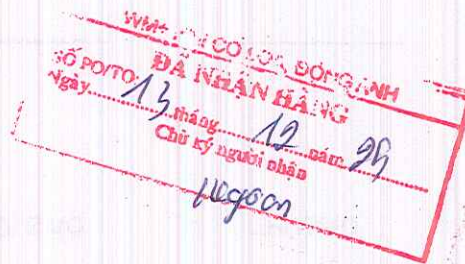 WM+ CỔ LOA, ĐÔNG ANH
ĐÃ NHẬN HÀNG
SỐ PO/TO
Ngày 13 tháng 12 năm 25
Chữ ký người nhận